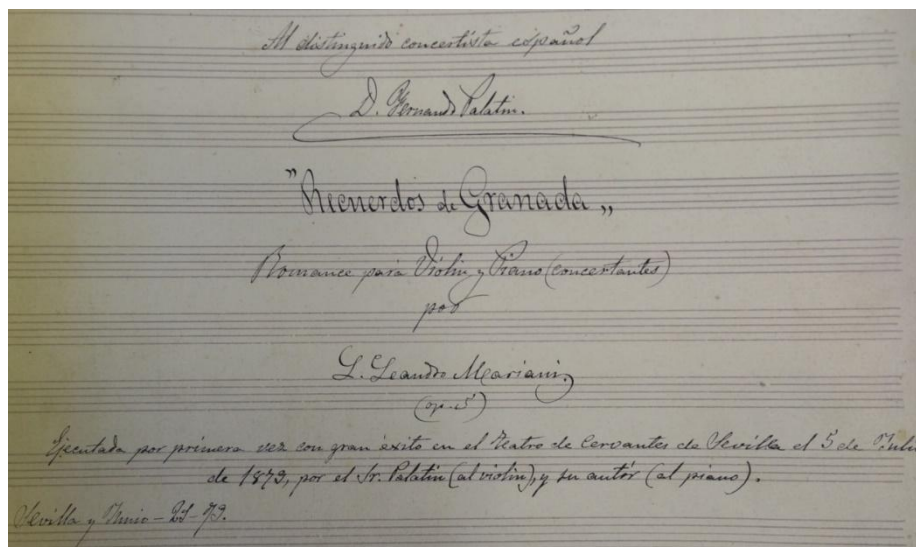 Al distinguido concertista español
D. Fernando Palatin.
"Recuerdos de Granada"
Romance para Violin y Piano (concertantes)
por
L. Leandro Mariani
(op. 5)
Ejecutada por primera vez con gran éxito en el Teatro de Cervantes de Sevilla el 5 de Juli
de 1879, por el Sr. Palatin (al violin), y su autór (al piano).
Sevilla y Junio - 25 - 79.